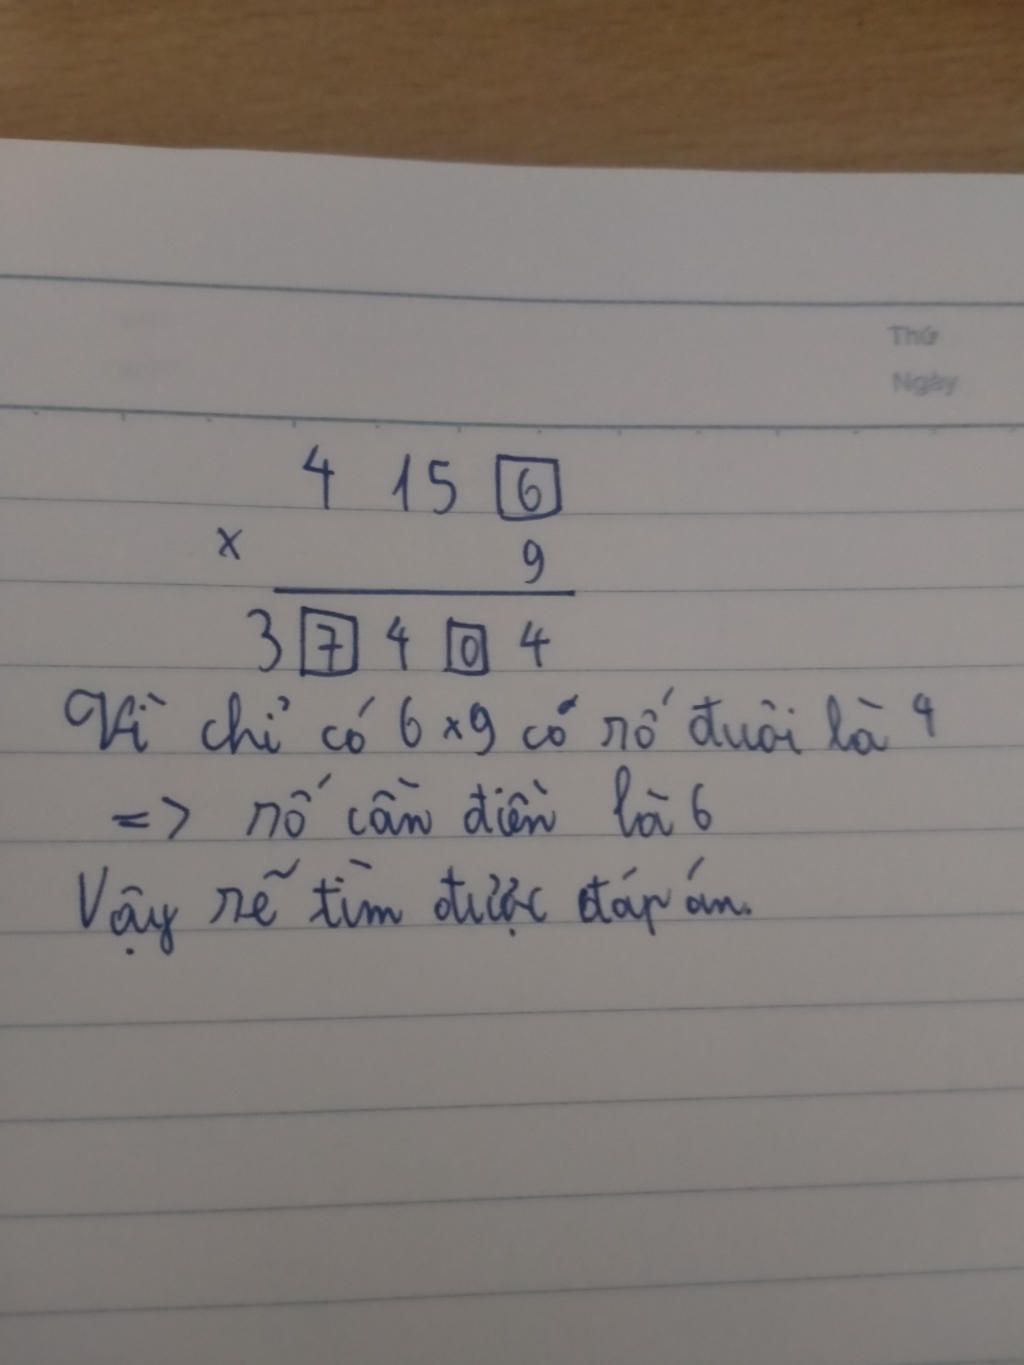 Thứ
Ngày
4 15 6
x 9
3 7 4 0 4
Vì chỉ có 6 x 9 có số đuôi là 4
=> số cần điền là 6
Vậy sẽ tìm được đáp án.